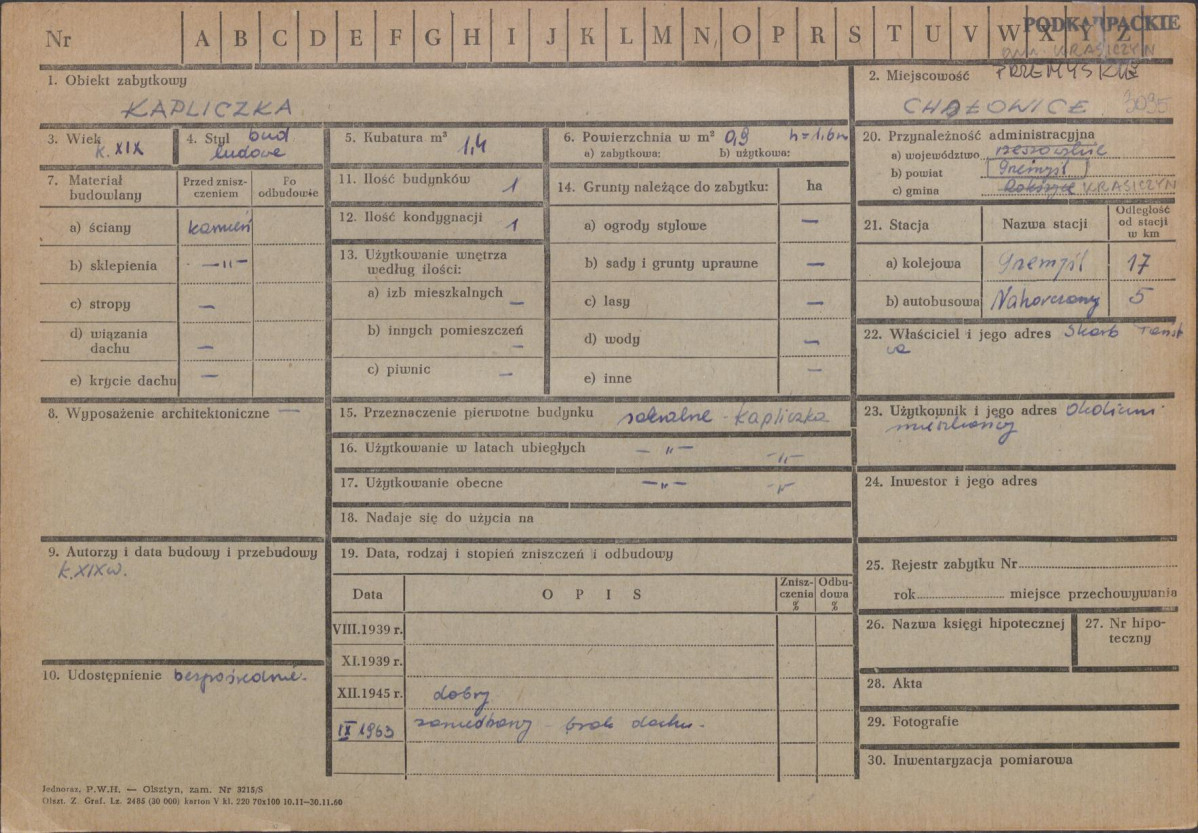 Nr A B C D E F G H I J K L M N O P R S T U V W X Y Z
PODKARPACKIE
GMI. KRASICZYN
PRZEMYSKIE
1. Obiekt zabytkowy
KAPLICZKA
2. Miejscowość
CHOŁOWICE 3095
3. Wiek
k. XIX
4. Styl bud
ludowe
5. Kubatura m³ 1,4
6. Powierzchnia w m² 0,9 h=1,6m
a) zabytkowa: b) użytkowa:
20. Przynależność administracyjna
a) województwo rzeszowskie
b) powiat Przemyśl
c) gmina KRASICZYN
7. Materiał budowlany
Przed zniszczeniem
Po odbudowie
a) ściany kamień
b) sklepienia —"—
c) stropy —
d) wiązania dachu —
e) krycie dachu —
11. Ilość budynków 1
12. Ilość kondygnacji 1
13. Użytkowanie wnętrza
według ilości:
a) izb mieszkalnych —
b) innych pomieszczeń —
c) piwnic —
14. Grunty należące do zabytku: ha
a) ogrody stylowe —
b) sady i grunty uprawne —
c) lasy —
d) wody —
e) inne —
21. Stacja Nazwa stacji Odległość od stacji w km
a) kolejowa Przemyśl 17
b) autobusowa 5
22. Właściciel i jego adres Skarb Państ
wa
8. Wyposażenie architektoniczne —
15. Przeznaczenie pierwotne budynku sakralne - kapliczka
16. Użytkowanie w latach ubiegłych —"— —"—
17. Użytkowanie obecne —"— —"—
18. Nadaje się do użycia na
23. Użytkownik i jego adres okoliczni
mieszkańcy
24. Inwestor i jego adres
9. Autorzy i data budowy i przebudowy
k. XIX w.
19. Data, rodzaj i stopień zniszczeń i odbudowy
Data OPIS Zniszczenia % Odbudowa %
VIII.1939 r.
XI.1939 r.
XII.1945 r. dobry
IX 1963 zaniedbany - brak dachu.
10. Udostępnienie bezpośrednie.
25. Rejestr zabytku Nr
rok miejsce przechowywania
26. Nazwa księgi hipotecznej
27. Nr hipoteczny
28. Akta
29. Fotografie
30. Inwentaryzacja pomiarowa
Jednoraz, P.W.H. — Olsztyn, zam. Nr 3215/S
Olszt. Z. Graf. Lz. 2485 (30 000) karton V kl. 220 70x100 10.11—30.11.60